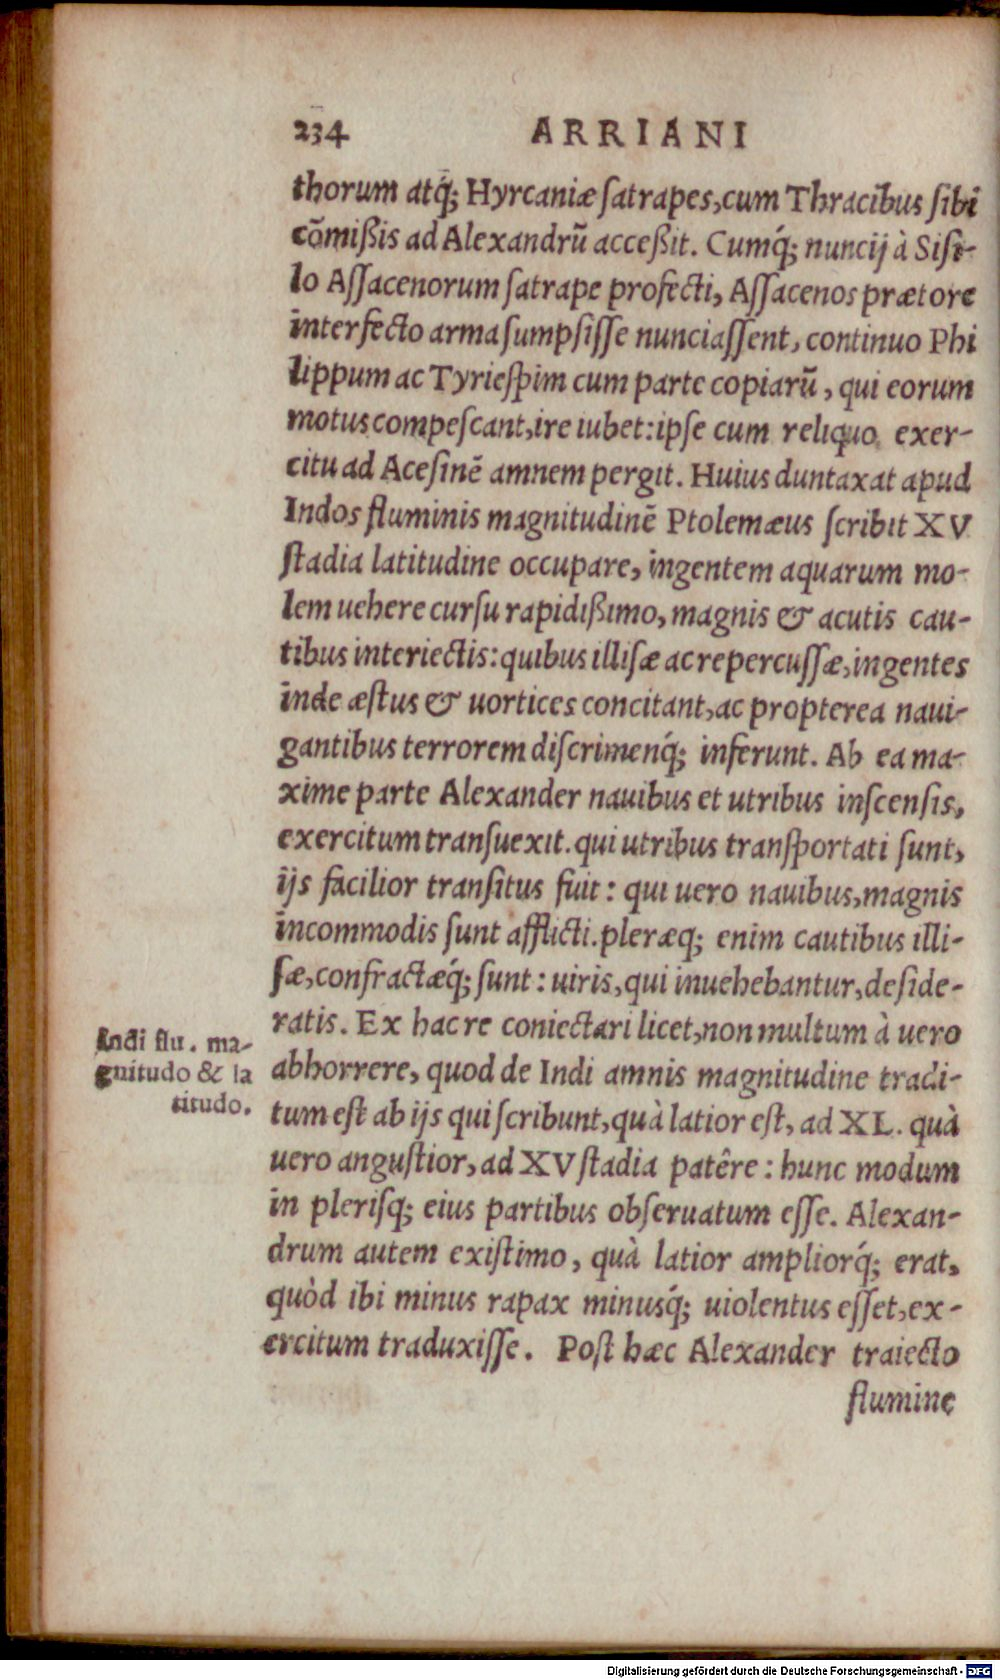 234 ARRIANI
thorum atq́; Hyrcaniæ ſatrapes, cum Thracibus ſibi
cõmißis ad Alexandrũ acceßit. Cumq́; nuncij à Siſi-
lo Aſſacenorum ſatrape profecti, Aſſacenos prætore
interfecto arma ſumpſiſſe nunciaſſent, continuo Phi
lippum ac Tyrieſpim cum parte copiarũ, qui eorum
motus compeſcant, ire iubet: ipſe cum reliquo exer-
citu ad Aceſinẽ amnem pergit. Huius duntaxat apud
Indos fluminis magnitudinẽ Ptolemæus ſcribit XV
ſtadia latitudine occupare, ingentem aquarum mo-
lem uehere curſu rapidißimo, magnis & acutis cau-
tibus interiectis: quibus illiſæ ac repercuſſæ, ingentes
inde æſtus & uortices concitant, ac propterea naui-
gantibus terrorem diſcrimenq́; inferunt. Ab ea ma-
xime parte Alexander nauibus et utribus inſcenſis,
exercitum tranſuexit. qui utribus tranſportati ſunt,
ijs facilior tranſitus fuit: qui uero nauibus, magnis
incommodis ſunt afflicti. pleræq; enim cautibus illi-
ſæ, confractæq́; ſunt: uiris, qui inuehebantur, deſide-
ratis. Ex hac re coniectari licet, non multum à uero
abhorrere, quod de Indi amnis magnitudine tradi-
tum eſt ab ijs qui ſcribunt, quà latior eſt, ad XL. quà
uero anguſtior, ad XV ſtadia patêre: hunc modum
in pleriſq; eius partibus obſeruatum eſſe. Alexan-
drum autem exiſtimo, quà latior ampliorq́; erat,
quòd ibi minus rapax minusq́; uiolentus eſſet, ex-
ercitum traduxiſſe. Poſt hæc Alexander traiecto
flumine
Indi flu. ma-
gnitudo & la
titudo.
Digitalisierung gefördert durch die Deutsche Forschungsgemeinschaft - DFG